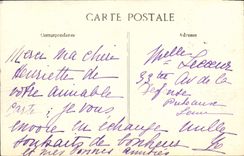 CARTE POSTALE
Correspondance
Adresse
Merci ma chère
Henriette de
votre aimable
carte; je vous
envoie en échange mille
souhaits de bonheur
et mes bonnes amitiés
Melle
Lecoeur
33 Av de la
Défense
Puteaux
Seine